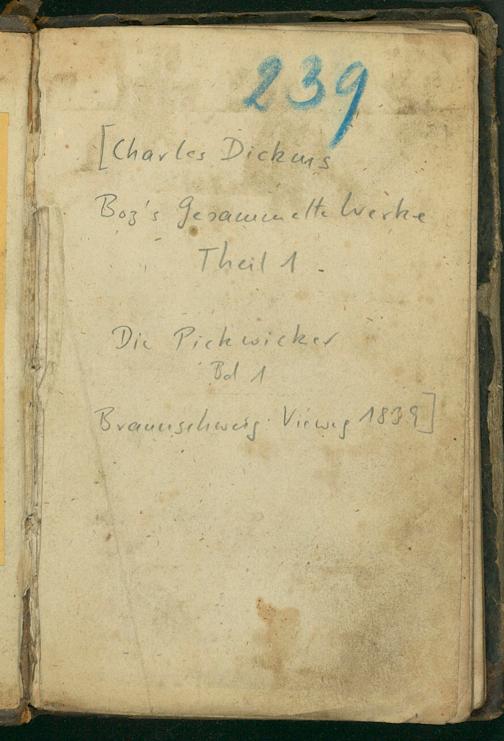 239
[Charles Dickens
Boz's Gesammelte Werke
Theil 1.
Die Pickwicker
Bd 1
Braunschweig: Vieweg 1839]